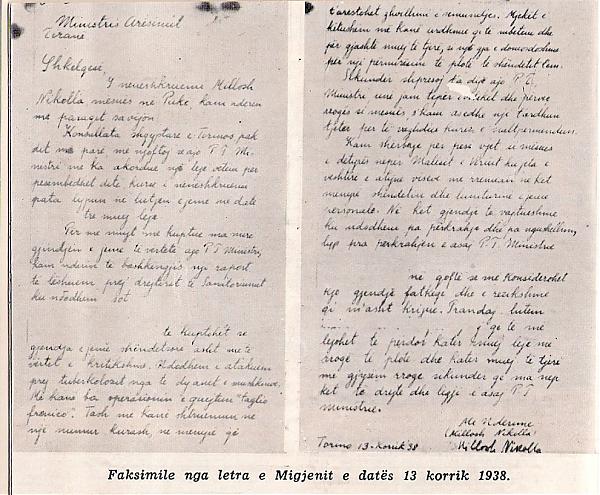 Ministris Arësimit
Tirane
Shkelgesë,
I nënëshkruemi Millosh
Nikolla mësues në Pukë, kam nderen
me paraqet sa vijon
Konsullata Shqyptare e Torinos, pak
dit ma parë, më njoftoj se ajo P. T. Mi-
nistri më ka akordue një leje vetëm për
pesëmbëdhet ditë kurse i nënëshkruemi
pata lypun në letjen e jeme në datë
tre muej leje
Për me mujt me kuptue ma mirë
gjendjen e jeme të vërtetë ajo P T Ministri,
kam nderin të bashkangjis nji raport
të lëshuem prej drejtorit të Sanatoriumit
ku ndodhem sot
të kuptohët se
gjendja e jemë shëndetsore âsht me të
vërtet e kritikshme. Ndodhem i atakuem
prej tuberkolozit nga të dy anët e mushknive.
Më kanë bâ operasionin e quejtun "taglio
frenico". Tash më kanë shtrënuar në
një mënurë kurash, në mënyrë që
t'arestohët zhvillimi i sëmundjes. Mjekët e
këtushëm më kanë urdhnue qi të mbetem dhe
për gjashtë muej të tjerë, se një gja e domosdoshme
për nji përmirësim të plotë të shëndetit tem.
Sikundër shpresoj ta dijë ajo P. T.
Ministri unë jam tepër i vobekët dhe përveç
rrogës si mësues s'kam asdhe një t'ardhun
tjetër për të vazhdue kurën e naltpërmendun.
Kam shërbye për pesë vjet si mësues
i detyrës nëpër Malësit e Veriut ku jeta e
veshtirë e atijve vëndeve më rrënuan në kët
mënyrë shëndetin dhe lumtunine e jeme
personale. Në kët gjendje të vajtueshme
ku ndodhem pa përkrahje dhe pa ngushëllim,
lyp pra përkrahjen e asaj P. T. Ministrie
në qoftë se më konsiderohet
kjo gjendje fatkeqe dhe e rrezikshme
qi m'âsht krijue. Prandaj lutem
qi të më
lejohet të përdor katër muej leje me
rrogë të plotë dhe katër muej të tjerë
me gjysëm rroge sikundër që ma nep
kët të drejtë dhe ligji e asaj P T
Ministrie.
Me Nderime
(Millosh Nikolla)
Millosh Nikolla
Torino 13-Korrik 38
Faksimile nga letra e Migjenit e datës 13 korrik 1938.